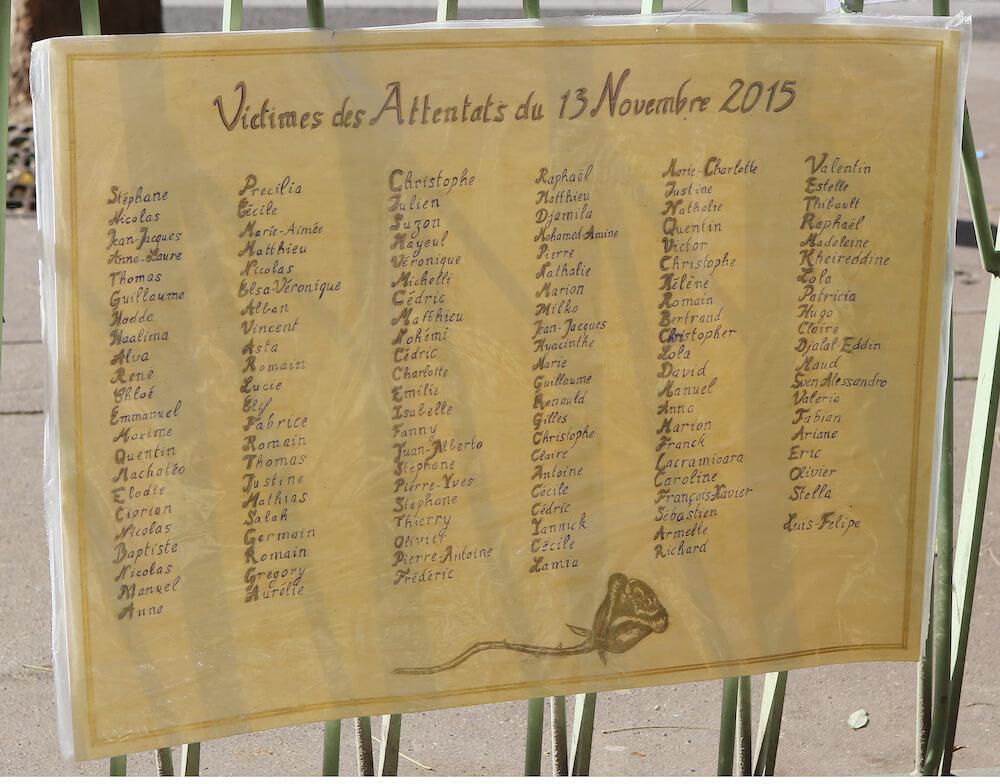 Victimes des Attentats du 13 Novembre 2015
Stéphane
Nicolas
Jean-Jacques
Anne-Laure
Thomas
Guillaume
Hodda
Haalima
Alva
René
Chloé
Emmanuel
Maxime
Quentin
Machatéo
Elodie
Ciprian
Nicolas
Baptiste
Nicolas
Manuel
Anne
Precilia
Cécile
Marie-Aimée
Matthieu
Nicolas
Elsa-Véronique
Alban
Vincent
Asta
Romain
Lucie
Elif
Fabrice
Romain
Thomas
Justine
Mathias
Salah
Germain
Romain
Gregory
Aurélie
Christophe
Julien
Suzon
Mayeul
Véronique
Michelli
Cédric
Matthieu
Nohémi
Cédric
Charlotte
Emilie
Isabelle
Fanny
Juan-Alberto
Stéphane
Pierre-Yves
Stéphane
Thierry
Olivier
Pierre-Antoine
Fréderic
Raphaël
Matthieu
Djamila
Mohamed-Amine
Pierre
Nathalie
Marion
Milko
Jean-Jacques
Hyacinthe
Marie
Guillaume
Renauld
Gilles
Christophe
Claire
Antoine
Cécile
Cédric
Yannick
Cécile
Lamia
Marie-Charlotte
Justine
Nathalie
Quentin
Victor
Christophe
Hélène
Romain
Bertrand
Christopher
Lola
David
Manuel
Anna
Marion
Franck
Lacramioara
Caroline
François-Xavier
Sébastien
Armelle
Richard
Valentin
Estelle
Thibault
Raphaël
Madeleine
Kheireddine
Lola
Patricia
Hugo
Claire
Djalal-Eddin
Maud
Sven Alessandro
Valeria
Fabian
Ariane
Eric
Olivier
Stella
Luis-Felipe